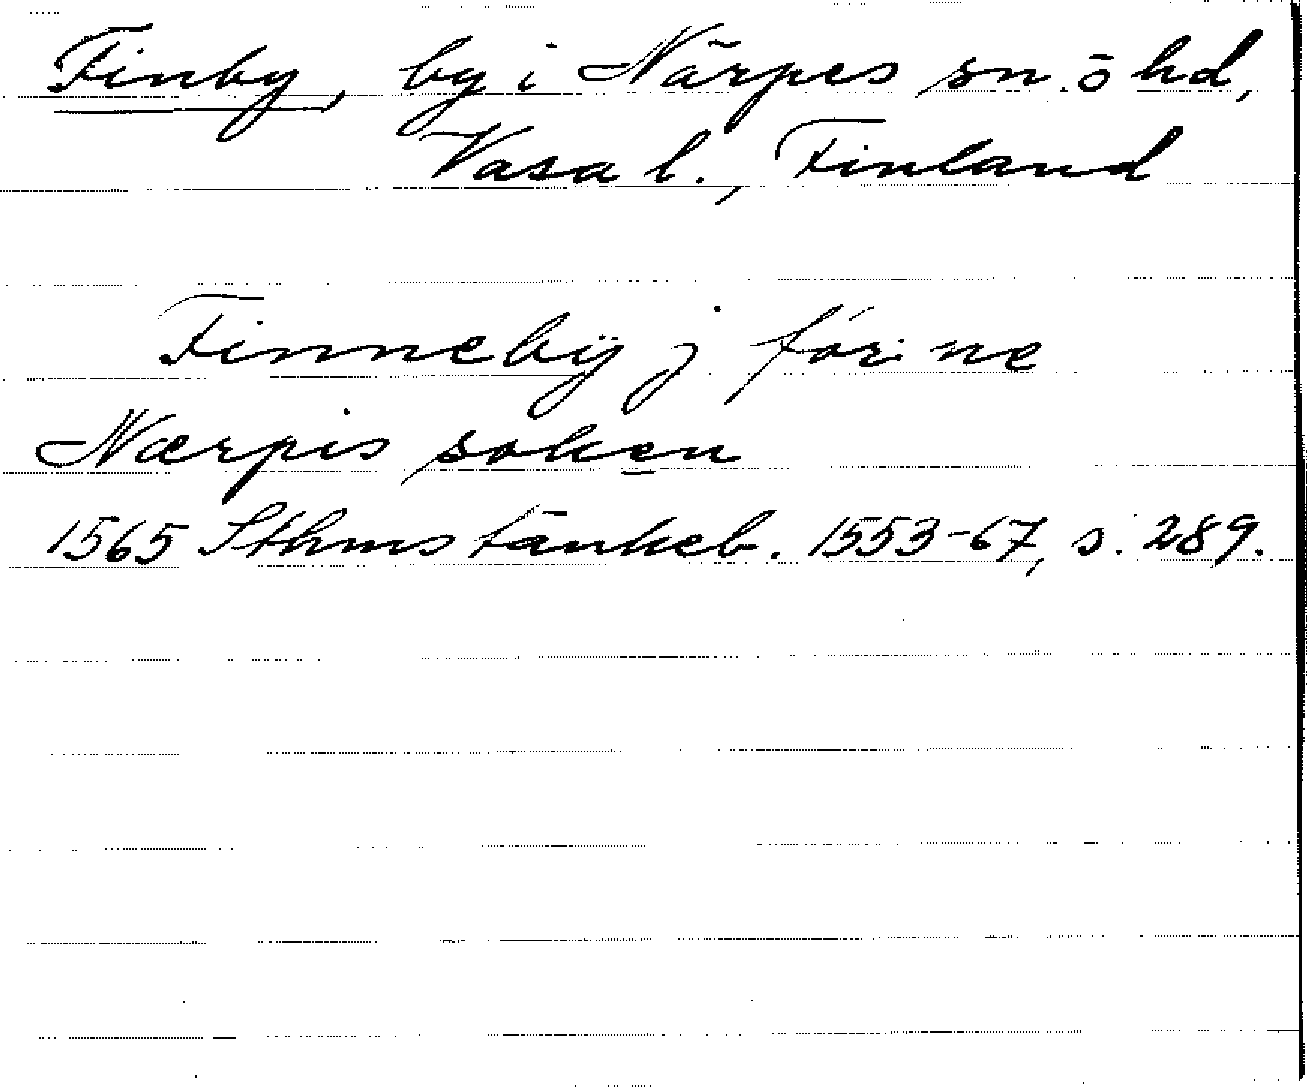 Finby, by i Närpes sn. o hd,
Vasa l., Finland
Finnebÿ j för:ne
Nærpis soken
1565 Sthms tänkeb. 1553-67, s. 289.